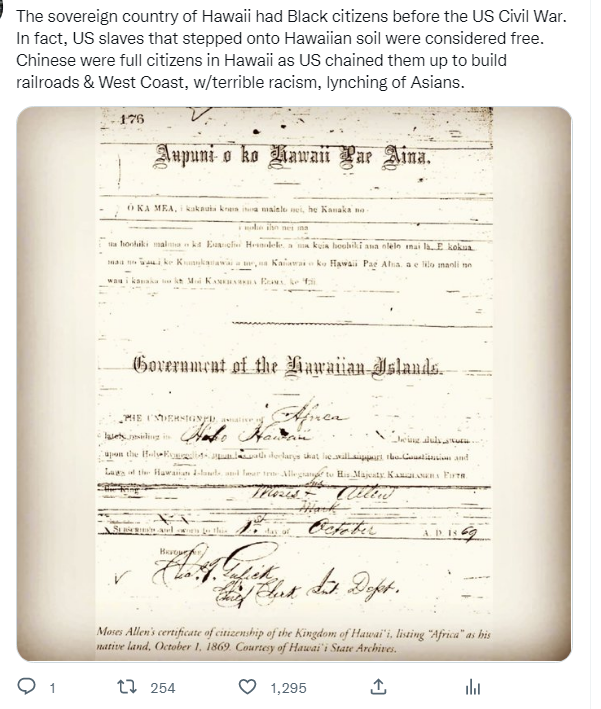 The sovereign country of Hawaii had Black citizens before the US Civil War.
In fact, US slaves that stepped onto Hawaiian soil were considered free.
Chinese were full citizens in Hawaii as US chained them up to build
railroads & West Coast, w/terrible racism, lynching of Asians.
176
Aupuni o ko Hawaii Pae Aina.
O KA MEA, i kakauia kona inoa malalo nei, he Kanaka no
ua hoohiki maluna o ka Euanelio Hemolele, a ma keia hoohiki ana olelo mai la, E kokua
mau no wau i ke Kumukanawai a me na Kanawai o ko Hawaii Pae Aina, a e lilo maoli no
wau i kanaka no ka Moi KAMEHAMEHA
Government of the Hawaiian Islands.
THE UNDERSIGNED, a native of Africa
lately residing in Hilo Hawaii being duly sworn
upon the Holy Evangelists, upon his oath declares that he will support the Constitution and
Laws of the Hawaiian Islands and bear true Allegiance to His Majesty KAMEHAMEHA FIFTH,
the King
his
Moses + Allen
Mark
Subscribed and sworn to this 1st day of October A. D. 1869
Chas. T. Gulick
Chief Clerk Int. Dept.
Moses Allen's certificate of citizenship of the Kingdom of Hawai`i, listing "Africa" as his
native land, October 1, 1869. Courtesy of Hawai`i State Archives.
1 254 1,295